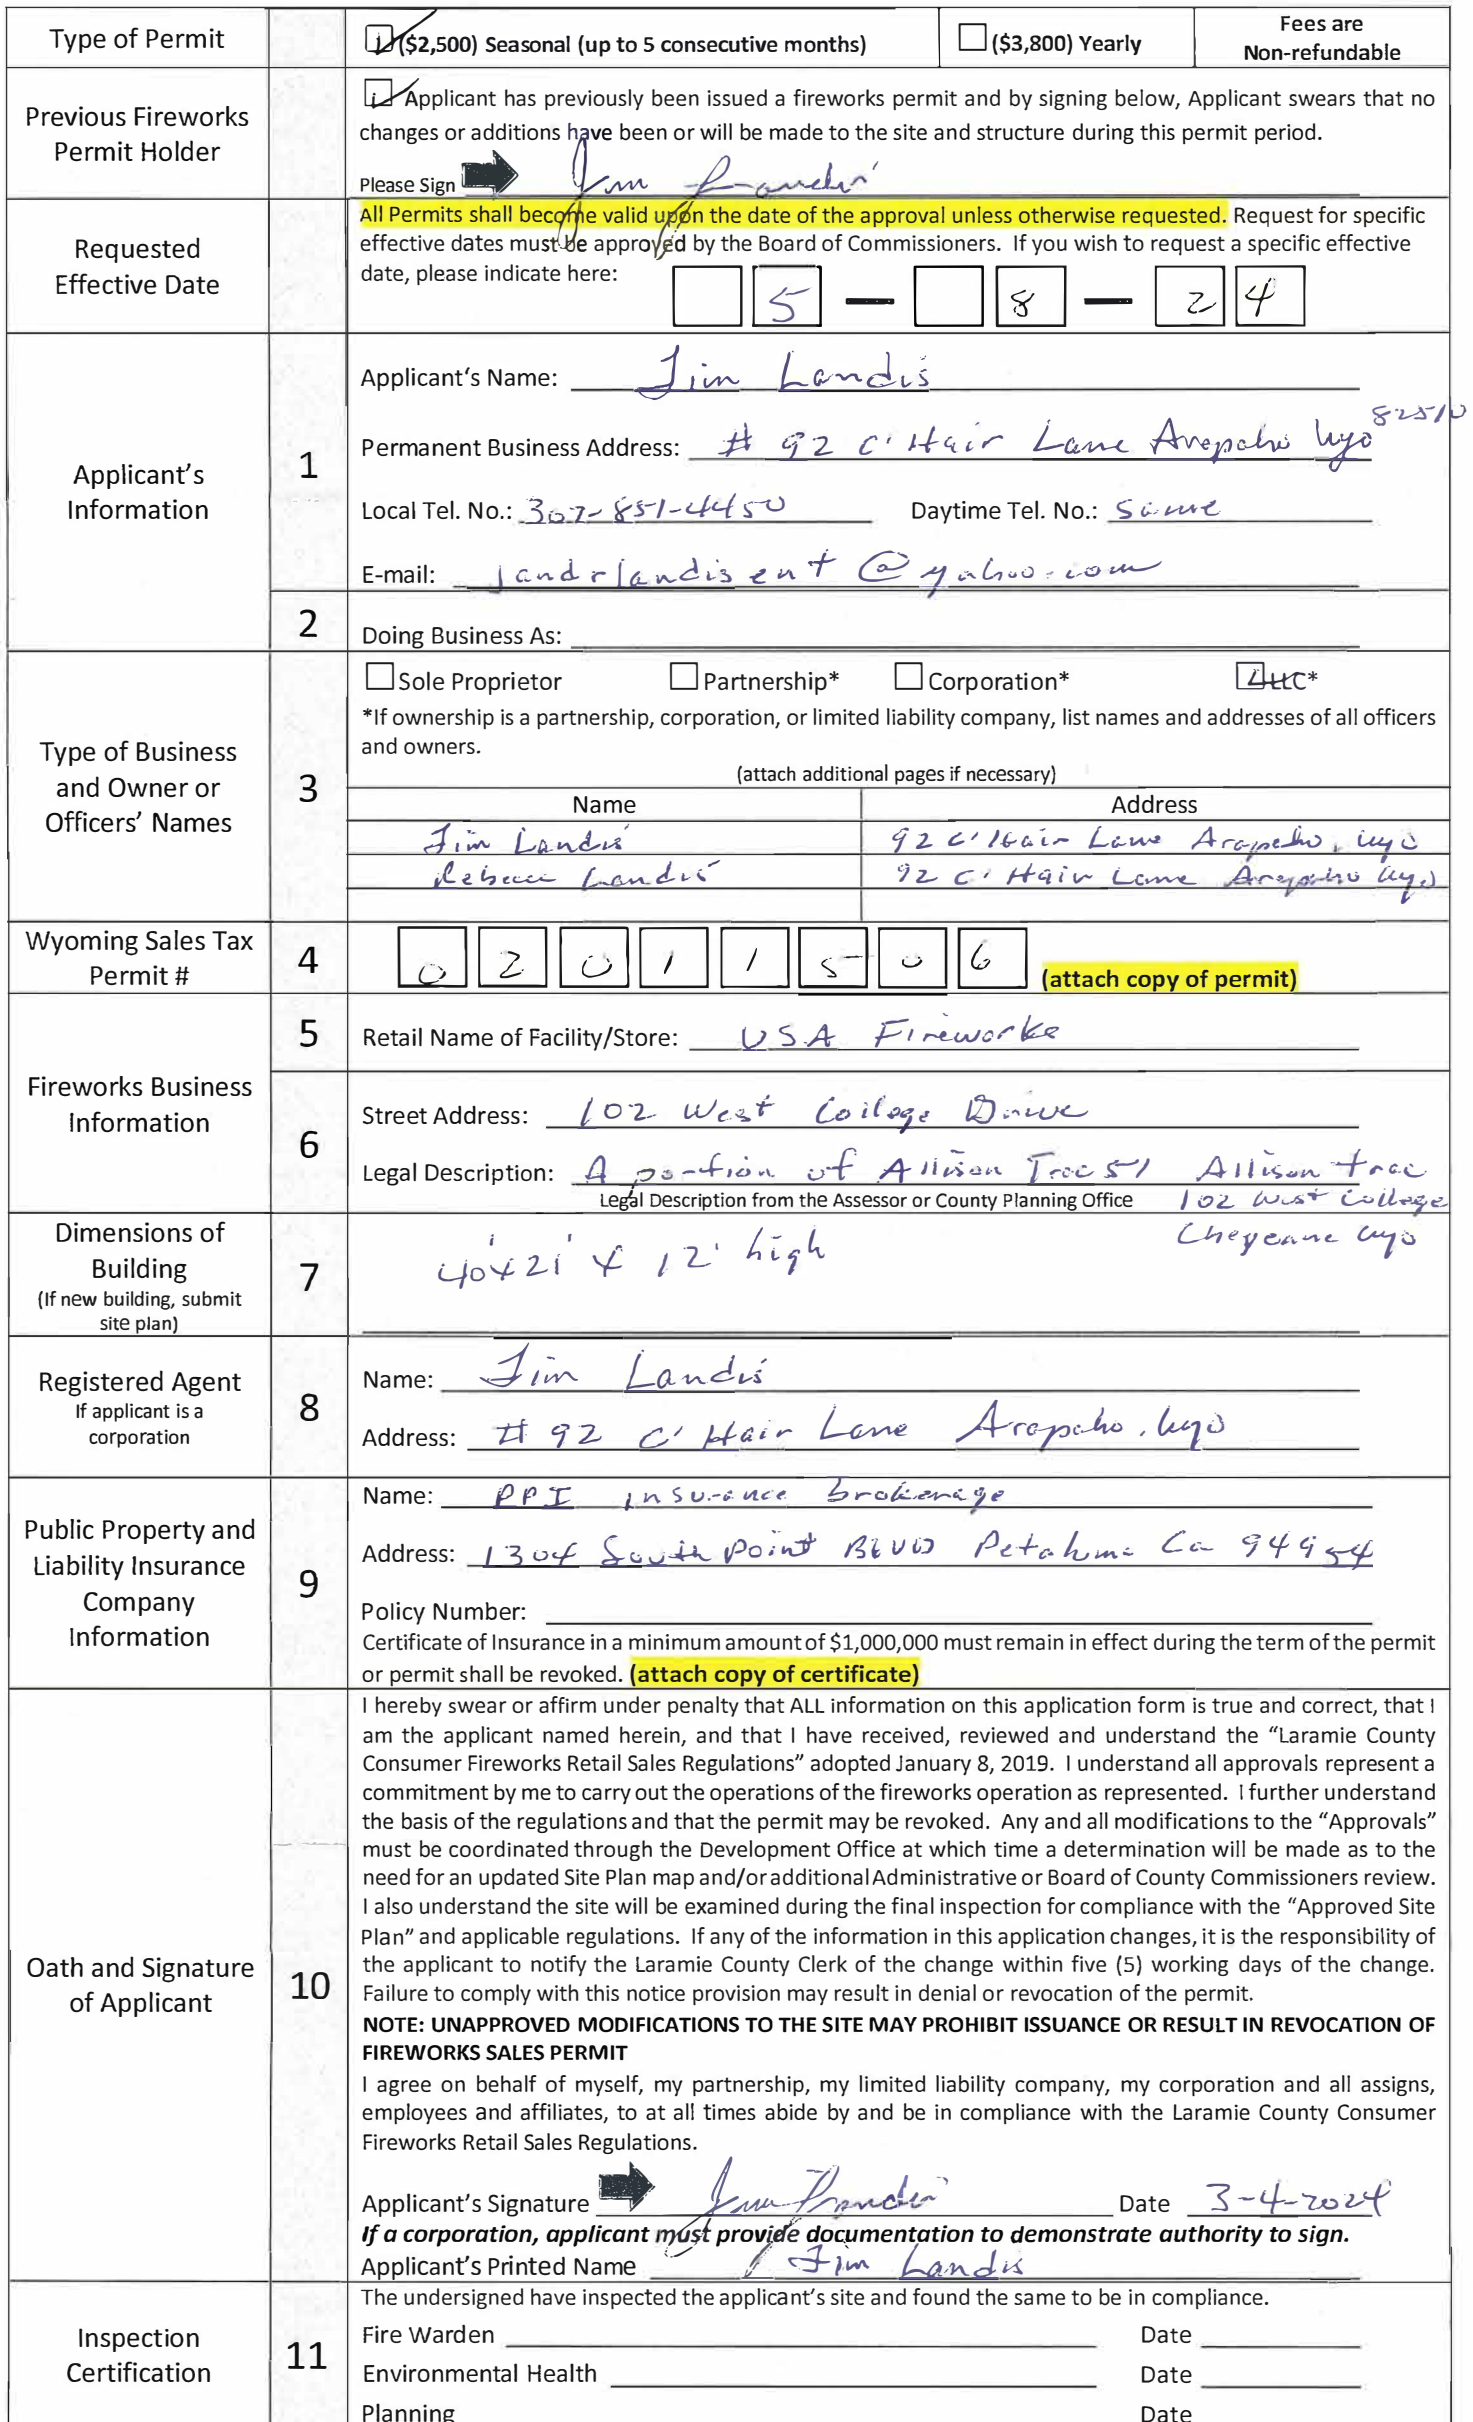 Type of Permit
($2,500) Seasonal (up to 5 consecutive months)
($3,800) Yearly
Fees are
Non-refundable
Previous Fireworks
Permit Holder
Applicant has previously been issued a fireworks permit and by signing below, Applicant swears that no
changes or additions have been or will be made to the site and structure during this permit period.
Please Sign Jim Landis
Requested
Effective Date
All Permits shall become valid upon the date of the approval unless otherwise requested. Request for specific
effective dates must be approved by the Board of Commissioners. If you wish to request a specific effective
date, please indicate here:
5 — 8 — 2 4
Applicant's
Information
1
Applicant's Name: Jim Landis
Permanent Business Address: # 92 C'Hair Lane Arapaho Wyo 82510
Local Tel. No.: 307-851-4450 Daytime Tel. No.: Same
E-mail: jandrlandisent@yahoo.com
2
Doing Business As:
Type of Business
and Owner or
Officers' Names
3
Sole Proprietor Partnership* Corporation* LLC*
*If ownership is a partnership, corporation, or limited liability company, list names and addresses of all officers
and owners.
(attach additional pages if necessary)
Name Address
Jim Landis 92 C'Hair Lane Arapaho, Wyo
Rebecca Landis 92 C'Hair Lane Arapaho Wyo
Wyoming Sales Tax
Permit #
4
0 2 0 1 1 5 0 6 (attach copy of permit)
Fireworks Business
Information
5
Retail Name of Facility/Store: USA Fireworks
6
Street Address: 102 West College Drive
Legal Description: A portion of Allison Trac 51 Allison trac
Legal Description from the Assessor or County Planning Office 102 West College
Cheyenne Wyo
Dimensions of
Building
(If new building, submit
site plan)
7
40'x21' x 12' high
Registered Agent
If applicant is a
corporation
8
Name: Jim Landis
Address: # 92 C'Hair Lane Arapaho, Wyo
Public Property and
Liability Insurance
Company
Information
9
Name: PPI insurance brokerage
Address: 1304 South Point BLVD Petaluma Ca 94954
Policy Number:
Certificate of Insurance in a minimum amount of $1,000,000 must remain in effect during the term of the permit
or permit shall be revoked. (attach copy of certificate)
Oath and Signature
of Applicant
10
I hereby swear or affirm under penalty that ALL information on this application form is true and correct, that I
am the applicant named herein, and that I have received, reviewed and understand the "Laramie County
Consumer Fireworks Retail Sales Regulations" adopted January 8, 2019. I understand all approvals represent a
commitment by me to carry out the operations of the fireworks operation as represented. I further understand
the basis of the regulations and that the permit may be revoked. Any and all modifications to the "Approvals"
must be coordinated through the Development Office at which time a determination will be made as to the
need for an updated Site Plan map and/or additional Administrative or Board of County Commissioners review.
I also understand the site will be examined during the final inspection for compliance with the "Approved Site
Plan" and applicable regulations. If any of the information in this application changes, it is the responsibility of
the applicant to notify the Laramie County Clerk of the change within five (5) working days of the change.
Failure to comply with this notice provision may result in denial or revocation of the permit.
NOTE: UNAPPROVED MODIFICATIONS TO THE SITE MAY PROHIBIT ISSUANCE OR RESULT IN REVOCATION OF
FIREWORKS SALES PERMIT
I agree on behalf of myself, my partnership, my limited liability company, my corporation and all assigns,
employees and affiliates, to at all times abide by and be in compliance with the Laramie County Consumer
Fireworks Retail Sales Regulations.
Applicant's Signature Jim Landis Date 3-4-2024
If a corporation, applicant must provide documentation to demonstrate authority to sign.
Applicant's Printed Name Jim Landis
Inspection
Certification
11
The undersigned have inspected the applicant's site and found the same to be in compliance.
Fire Warden Date
Environmental Health Date
Planning Date